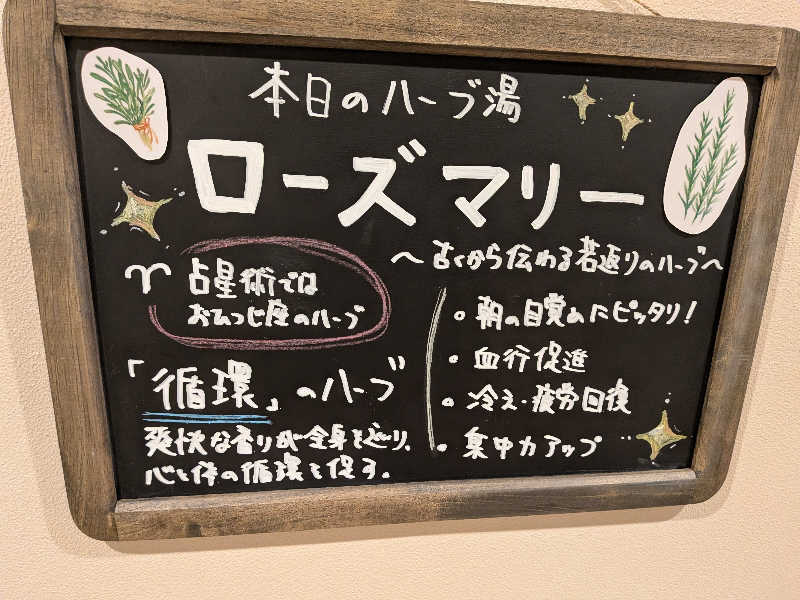 本日のハーブ湯
ローズマリー
〜古くから伝わる若返りのハーブ〜
♈ 占星術では
おひつじ座のハーブ
「循環」のハーブ
爽快な香りが全身を巡り、
心と体の循環を促す。
・朝の目覚めにピッタリ!
・血行促進
・冷え・疲労回復
・集中力アップ